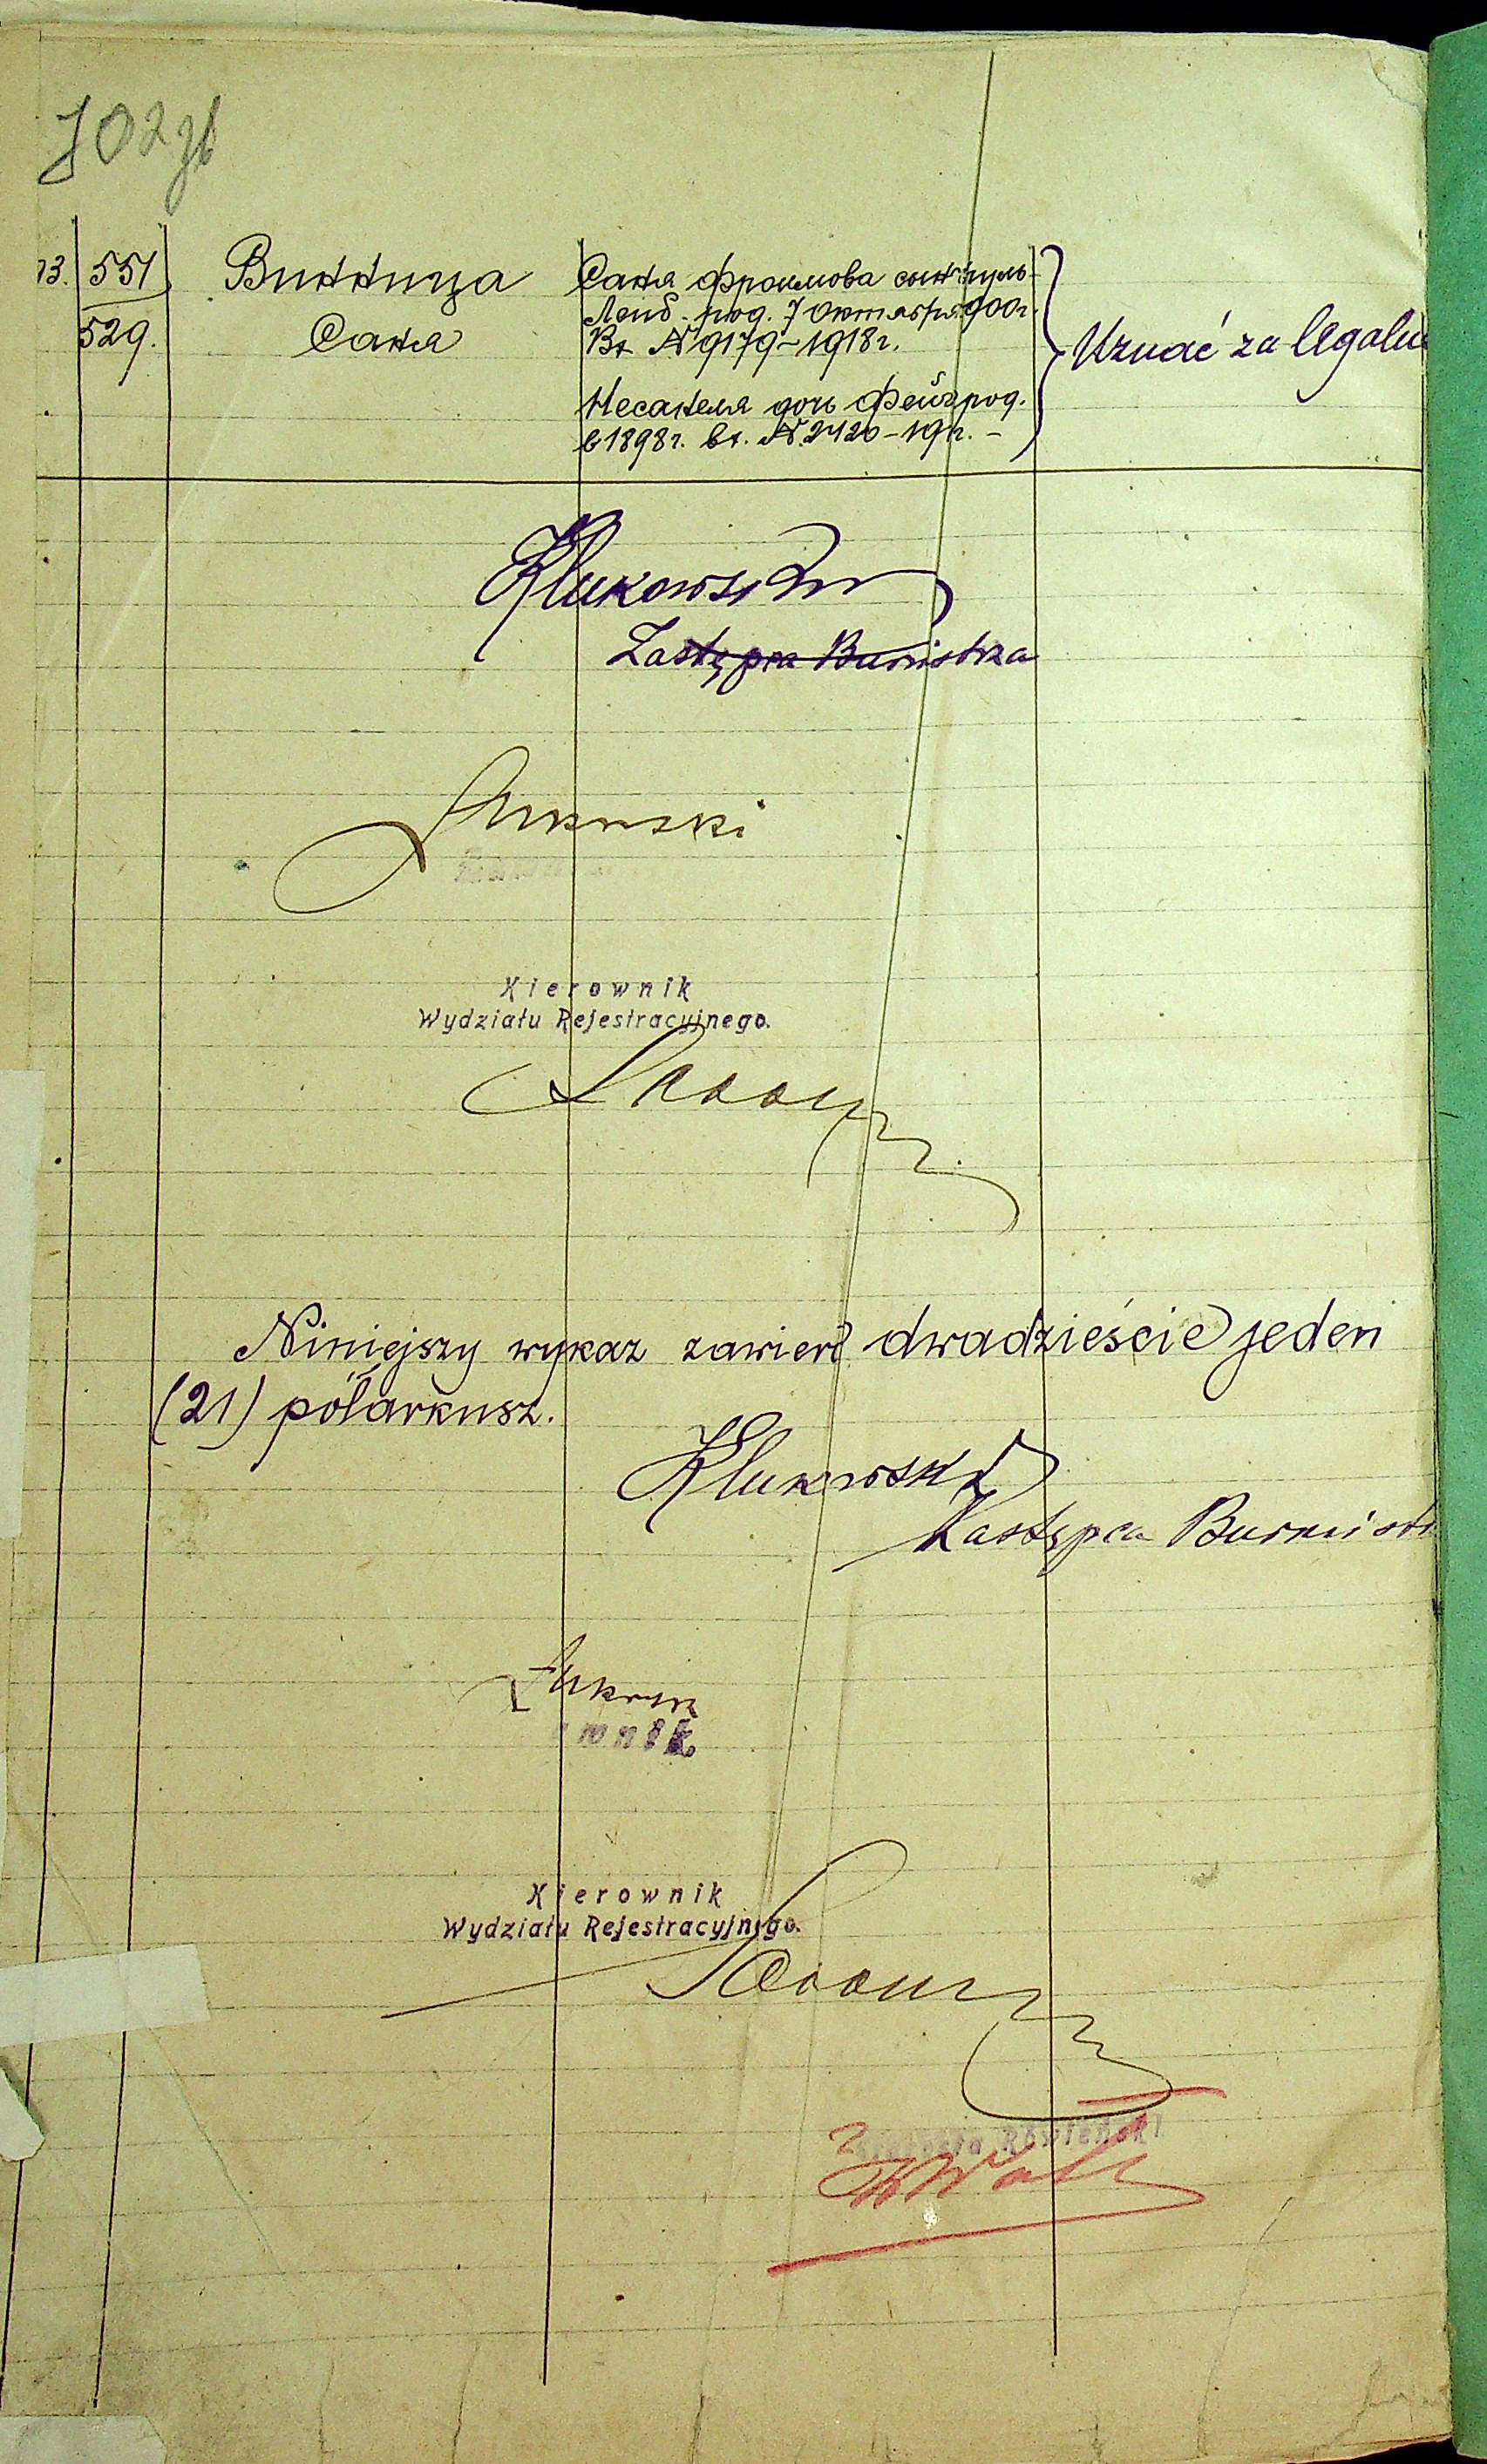 702 zł
13. 551
529.
Винница
Саня
Саня Фроимова сын Шуль-
Лейб - род. 7 Октября 900г.
Вх № 9179-1918г.
Несанеля дочь Фейга род.
в 1898г. вх. № 2420-19г. -
Uznać za legaln
Klukowski
Zastępca Burmistrza
Kierownik
Wydziału Rejestracyjnego.
Niniejszy wykaz zawiera dwadzieście jeden
(21) półarkusz.
Klukowski
Zastępca Burmistr
wnik
Kierownik
Wydziału Rejestracyjnego.
Starosta Rówieński